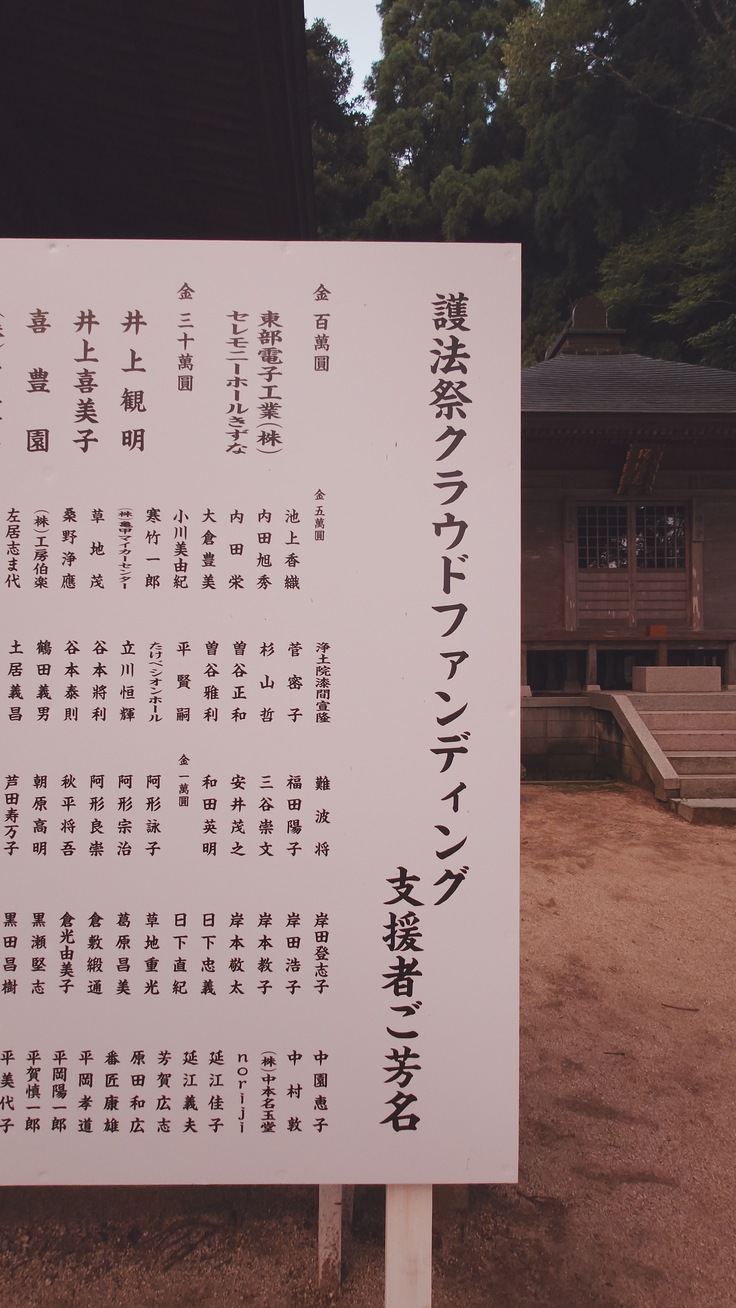 護法祭クラウドファンディング
支援者ご芳名
金 百萬圓
東部電子工業(株)
セレモニーホールきずな
金 三十萬圓
井上観明
井上喜美子
喜豊園
金 五萬圓
池上香織
内田旭秀
内田栄
大倉豊美
小川美由紀
寒竹一郎
(株)亀甲マイカーセンター
草地茂
桑野浄應
(株)工房伯楽
左居志ま代
浄土院漆間宣隆
菅密子
杉山哲
曽谷正和
曽谷雅利
平賢嗣
たけべシオンホール
立川恒輝
谷本將利
谷本泰則
鶴田義男
土居義昌
難波将
福田陽子
三谷崇文
安井茂之
和田英明
金 一萬圓
阿形詠子
阿形宗治
阿形良崇
秋平将吾
朝原高明
芦田寿万子
岸田登志子
岸田浩子
岸本教子
岸本敬太
日下忠義
日下直紀
草地重光
葛原昌美
倉敷緞通
倉光由美子
黒瀬堅志
黒田昌樹
中園恵子
中村敦
(株)中本名玉堂
noriji
延江佳子
延江義夫
芳賀広志
原田和広
番匠康雄
平岡孝道
平岡陽一郎
平賀慎一郎
平美代子